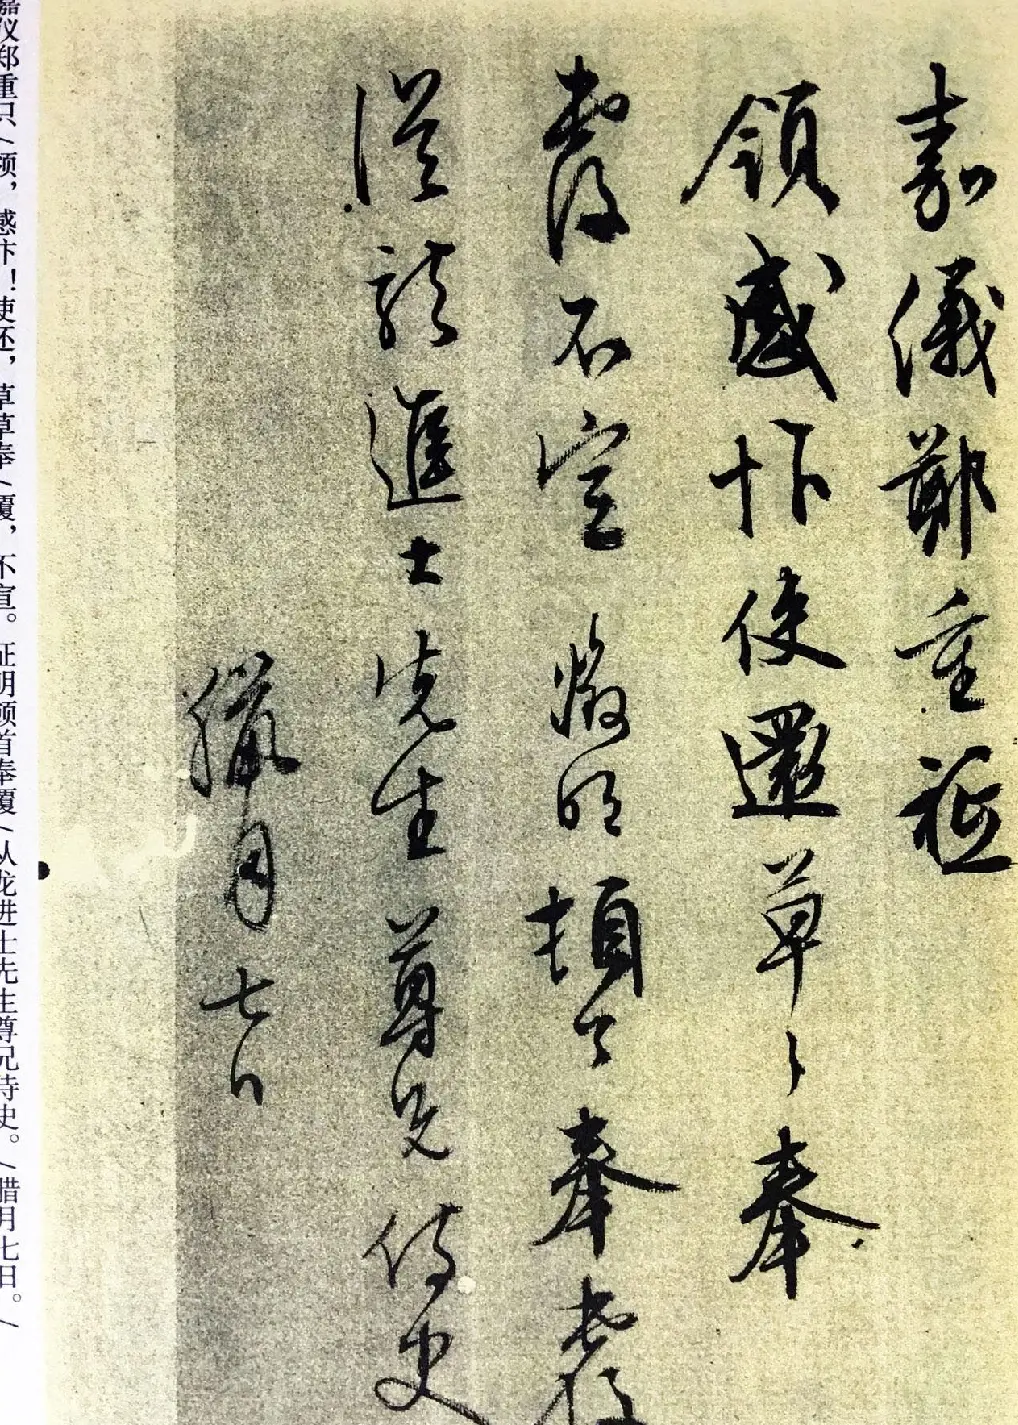 嘉儀鄭重祗
領感忭使還草〻奉
覆不宣徵明頓首奉覆
從龍進士先生尊兄侍史
臘月七日
嘉仪郑重只(领，感忭！使还，草草奉(覆，不宣。征明顿首奉覆(从龙进士先生尊兄侍史。(腊月七日。(